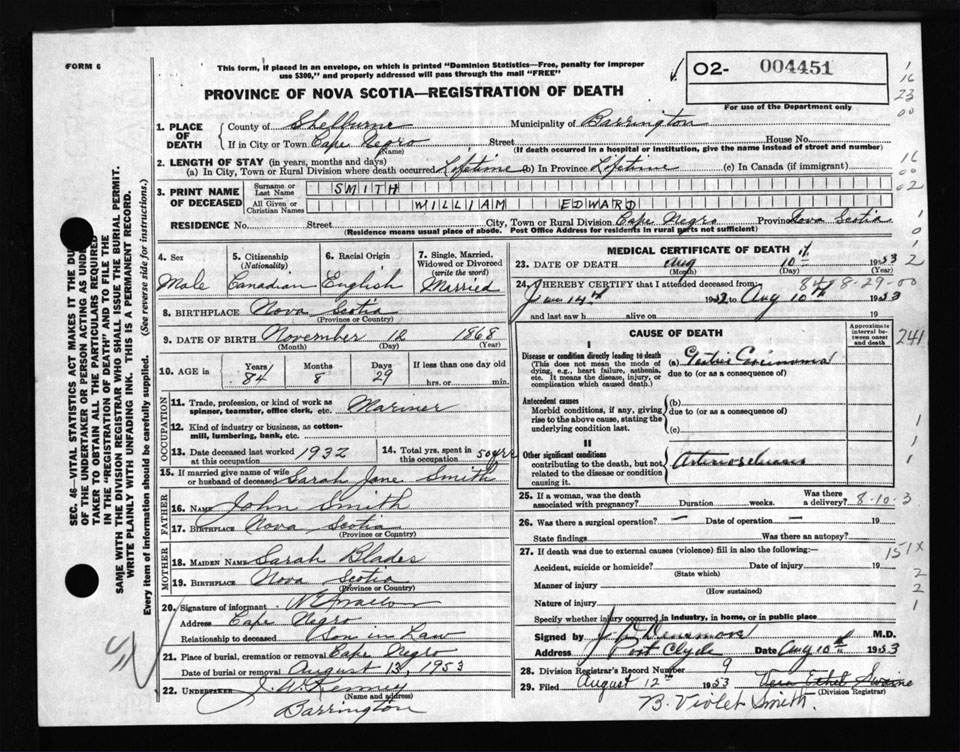 FORM 6
This form, if placed in an envelope, on which is printed "Dominion Statistics—Free, penalty for improper
use $300," and properly addressed will pass through the mail "FREE"
PROVINCE OF NOVA SCOTIA—REGISTRATION OF DEATH
O2- 004451
For use of the Department only
1
16
23
00
1. PLACE OF DEATH
County of Shelburne Municipality of Barrington
If in City or Town Cape Negro Street House No.
(Name) (If death occurred in a hospital or institution, give the name instead of street and number)
2. LENGTH OF STAY (in years, months and days)
(a) In City, Town or Rural Division where death occurred Lifetime (b) In Province Lifetime (c) In Canada (if immigrant)
16
00
02
3. PRINT NAME OF DECEASED
Surname or Last Name SMITH
All Given or Christian Names WILLIAM EDWARD
RESIDENCE No. Street City, Town or Rural Division Cape Negro Province Nova Scotia
(Residence means usual place of abode. Post Office Address for residents in rural parts not sufficient)
4. Sex Male
5. Citizenship (Nationality) Canadian
6. Racial Origin English
7. Single, Married, Widowed or Divorced (write the word) Married
8. BIRTHPLACE Nova Scotia
(Province or Country)
9. DATE OF BIRTH November 12 1868
(Month) (Day) (Year)
10. AGE in Years 84 Months 8 Days 29 If less than one day old hrs. or min.
OCCUPATION
11. Trade, profession, or kind of work as spinner, teamster, office clerk, etc. Mariner
12. Kind of industry or business, as cotton-mill, lumbering, bank, etc.
13. Date deceased last worked at this occupation 1932
14. Total yrs. spent in this occupation 50 yrs
15. If married give name of wife or husband of deceased Sarah Jane Smith
FATHER
16. Name John Smith
17. Birthplace Nova Scotia
(Province or Country)
MOTHER
18. Maiden Name Sarah Blades
19. Birthplace Nova Scotia
(Province or Country)
20. Signature of informant
Address Cape Negro
Relationship to deceased Son in Law
21. Place of burial, cremation or removal Cape Negro
Date of burial or removal August 13, 1953
22. Undertaker J. W. Kenney
(Name and address)
Barrington
MEDICAL CERTIFICATE OF DEATH
23. DATE OF DEATH Aug 10th 1953
(Month) (Day) (Year)
24. I HEREBY CERTIFY that I attended deceased from:
84 8-29-00
14th to Aug 10th 1953
and last saw h alive on 19
CAUSE OF DEATH
Approximate interval between onset and death
241
I
Disease or condition directly leading to death
(This does not mean the mode of dying, e.g., heart failure, asthenia, etc. It means the disease, injury, or complication which caused death.)
(a) Gastric Carcinoma
due to (or as a consequence of)
Antecedent causes
Morbid conditions, if any, giving rise to the above cause, stating the underlying condition last.
(b)
due to (or as a consequence of)
(c)
II
Other significant conditions
contributing to the death, but not related to the disease or condition causing it.
Arteriosclerosis
25. If a woman, was the death associated with pregnancy? Duration weeks. Was there a delivery?
8-10-3
26. Was there a surgical operation? — Date of operation — 19
State findings Was there an autopsy?
27. If death was due to external causes (violence) fill in also the following:—
151X
Accident, suicide or homicide? Date of injury 19
(State which)
Manner of injury
(How sustained)
Nature of injury
Specify whether injury occurred in industry, in home, or in public place
Signed by Densmore M.D.
Address Port Clyde Date Aug 10th 1953
28. Division Registrar's Record Number 9
29. Filed August 12th 1953 Vera Ethel Swaine
(Division Registrar)
B. Violet Smith.
SEC. 46—VITAL STATISTICS ACT MAKES IT THE DUTY
OF THE UNDERTAKER OR PERSON ACTING AS UNDER-
TAKER TO OBTAIN ALL THE PARTICULARS REQUIRED
IN THE "REGISTRATION OF DEATH" AND TO FILE THE
SAME WITH THE DIVISION REGISTRAR WHO SHALL ISSUE THE BURIAL PERMIT.
WRITE PLAINLY WITH UNFADING INK. THIS IS A PERMANENT RECORD.
Every item of information should be carefully supplied. (See reverse side for instructions.)